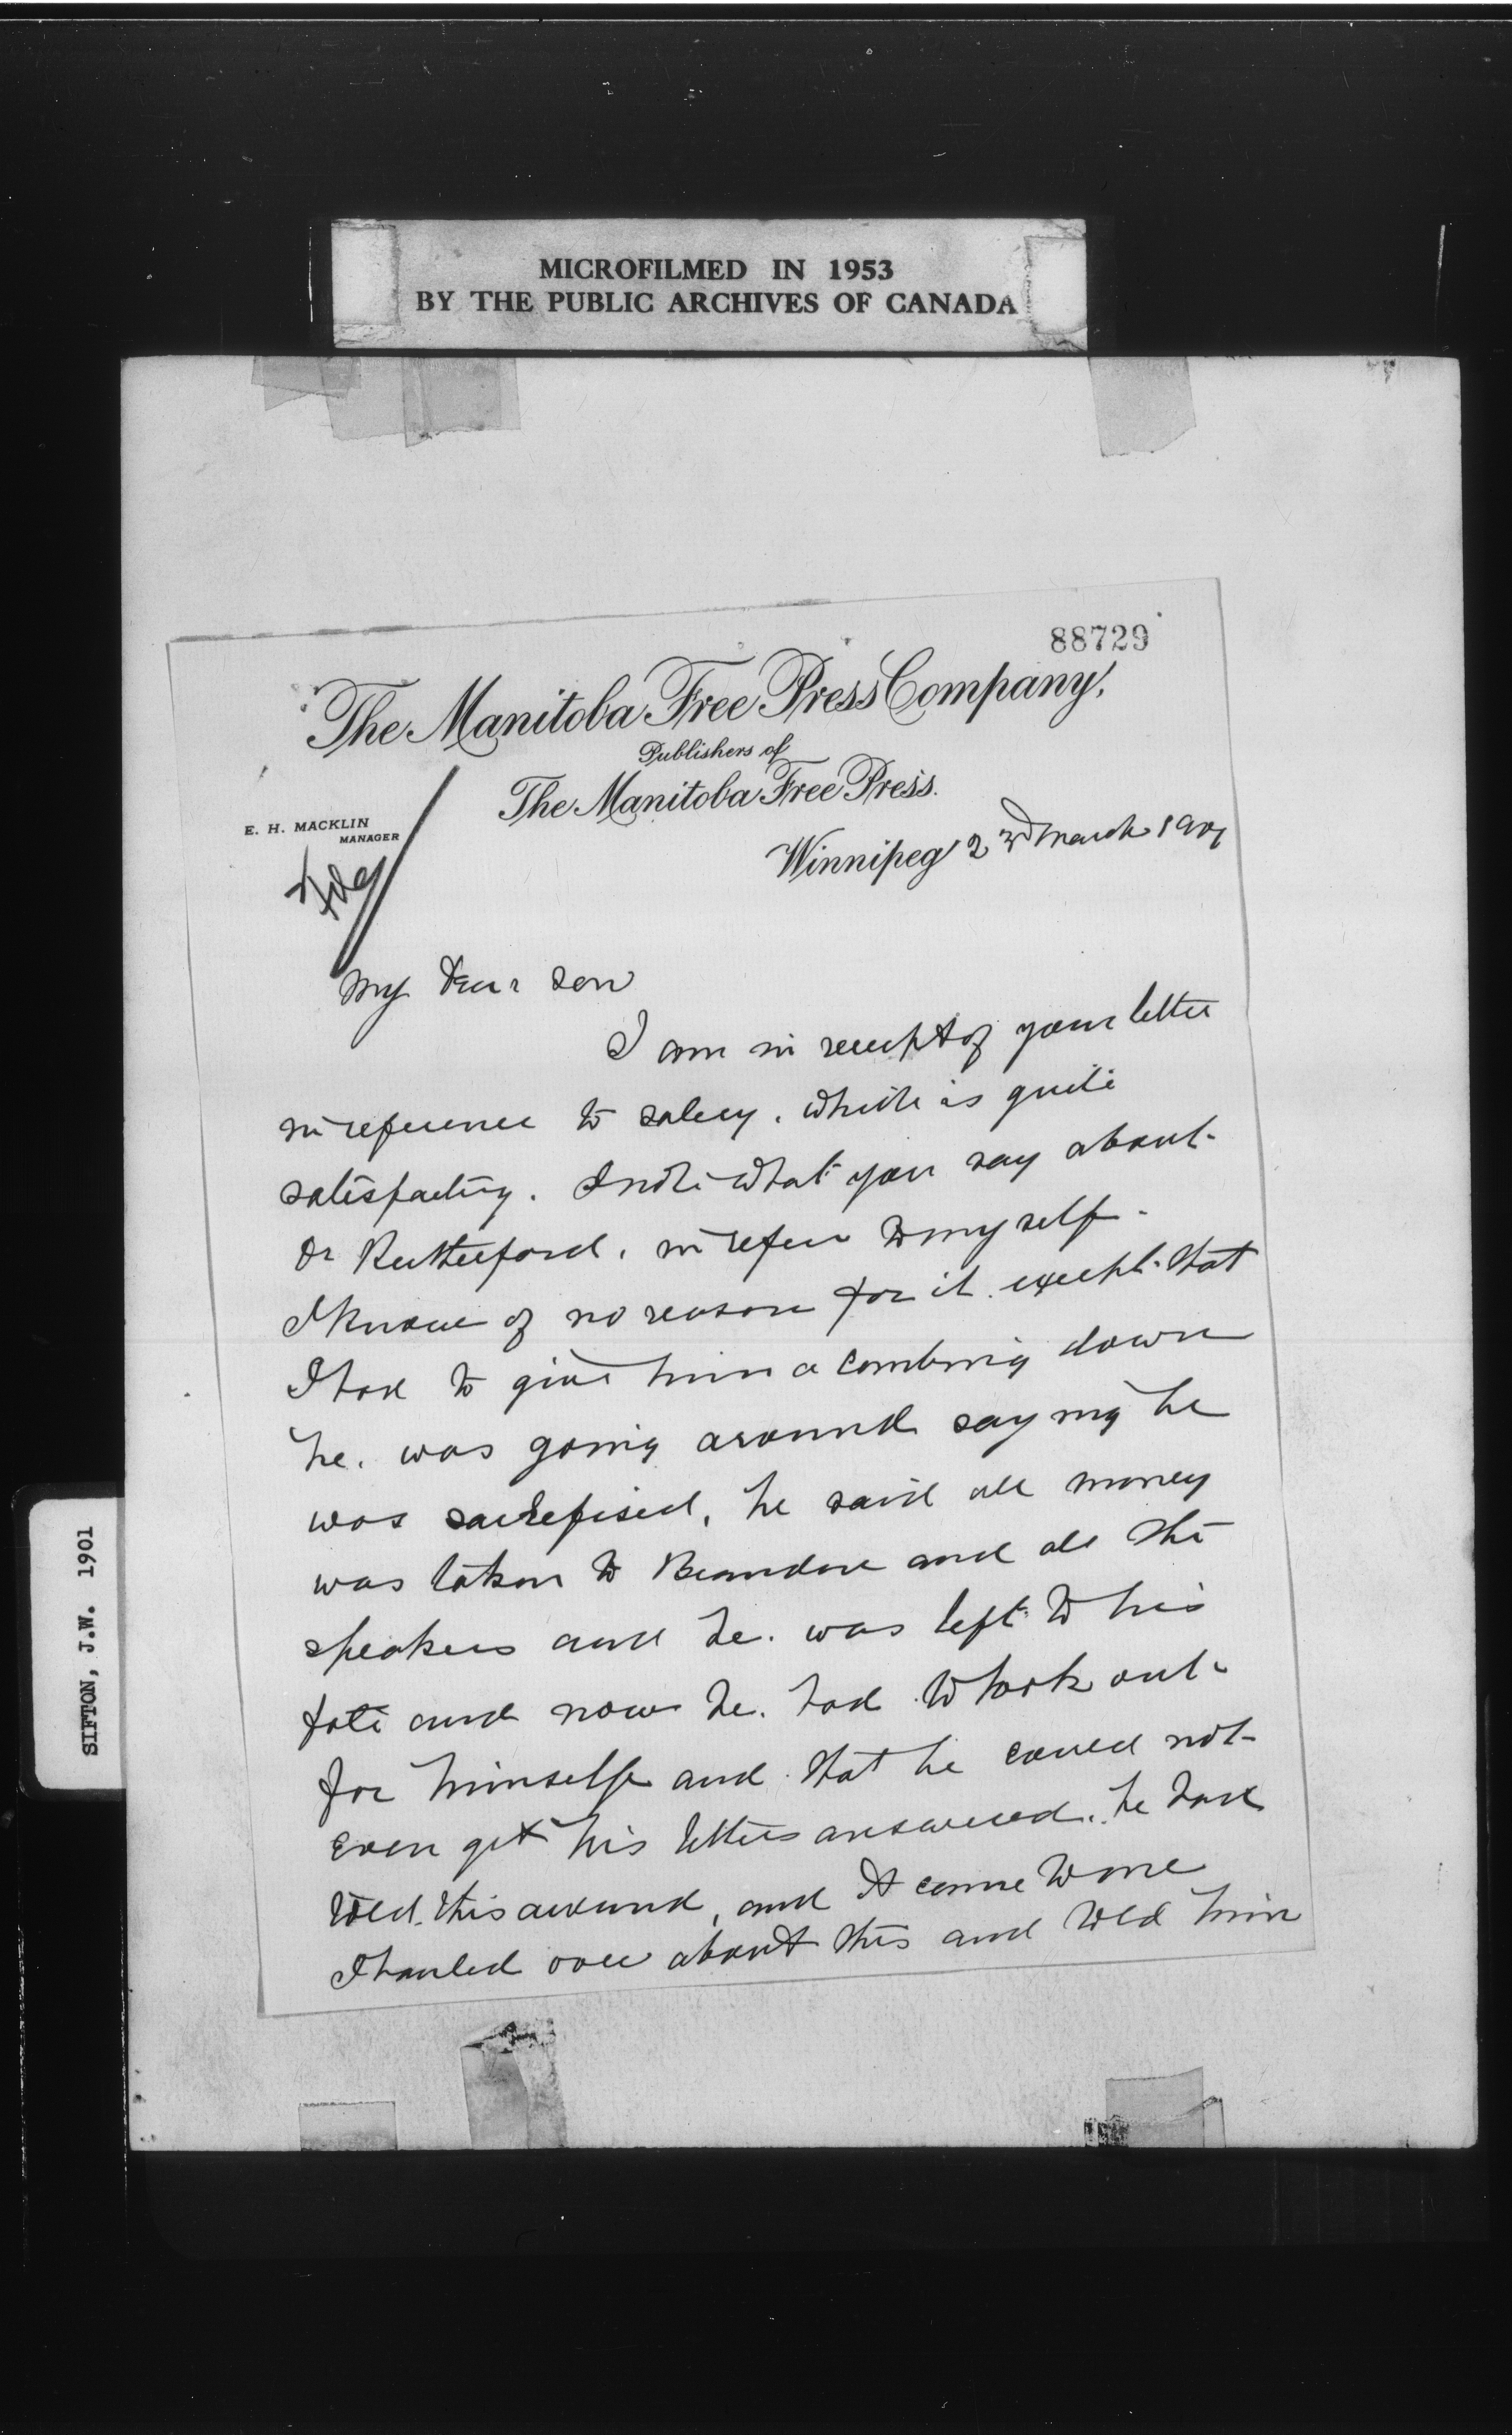 MICROFILMED IN 1953
BY THE PUBLIC ARCHIVES OF CANADA
88729
The Manitoba Free Press Company,
Publishers of
The Manitoba Free Press.
E. H. MACKLIN
MANAGER
Winnipeg 2 3rd March 1901
My Dear Son
I am in receipt of your letter
in reference to salery. which is quite
satisfactory. I note what you say about
Dr Rutherford. in refer to my self.
I know of no reason for it. except that
I had to give him a combing down
he. was going around saying he
was sacrefised, he said all money
was taken to Brandon and all the
speakers and he. was left to his
fate and now he. had to look out
for himself and that he could not
even get his letters answered. he had
told this around, and it came to me
I hauled over about this and told him
SIFTON, J.W. 1901